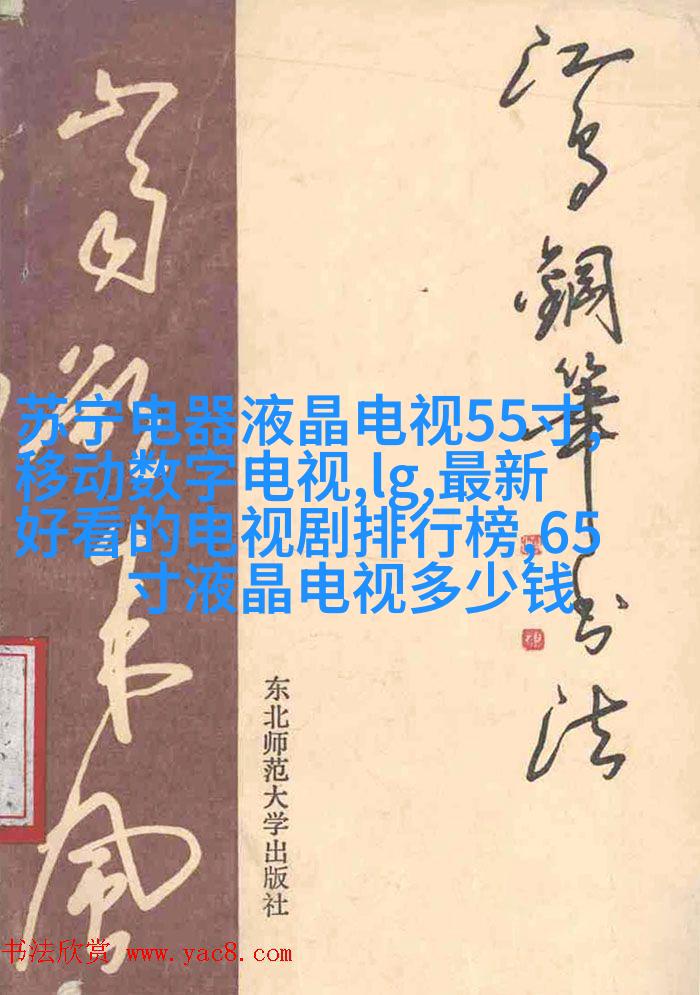 江鸟鋼筆书法
苏宁电器液晶电视55寸,
移动数字电视,lg,最新
好看的电视剧排行榜,65
寸液晶电视多少钱
东北师范大学出版社
书法欣赏 www.yac8.com